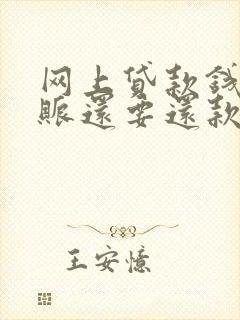 网上贷款钱
赈还要还款
王安忆